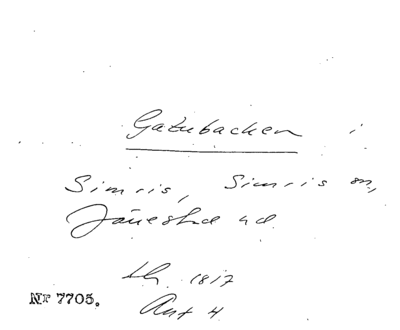 Gatubacken i
Simris, Simris sn,
Järrestad hd
1817
Ant 4
Nr 7705.